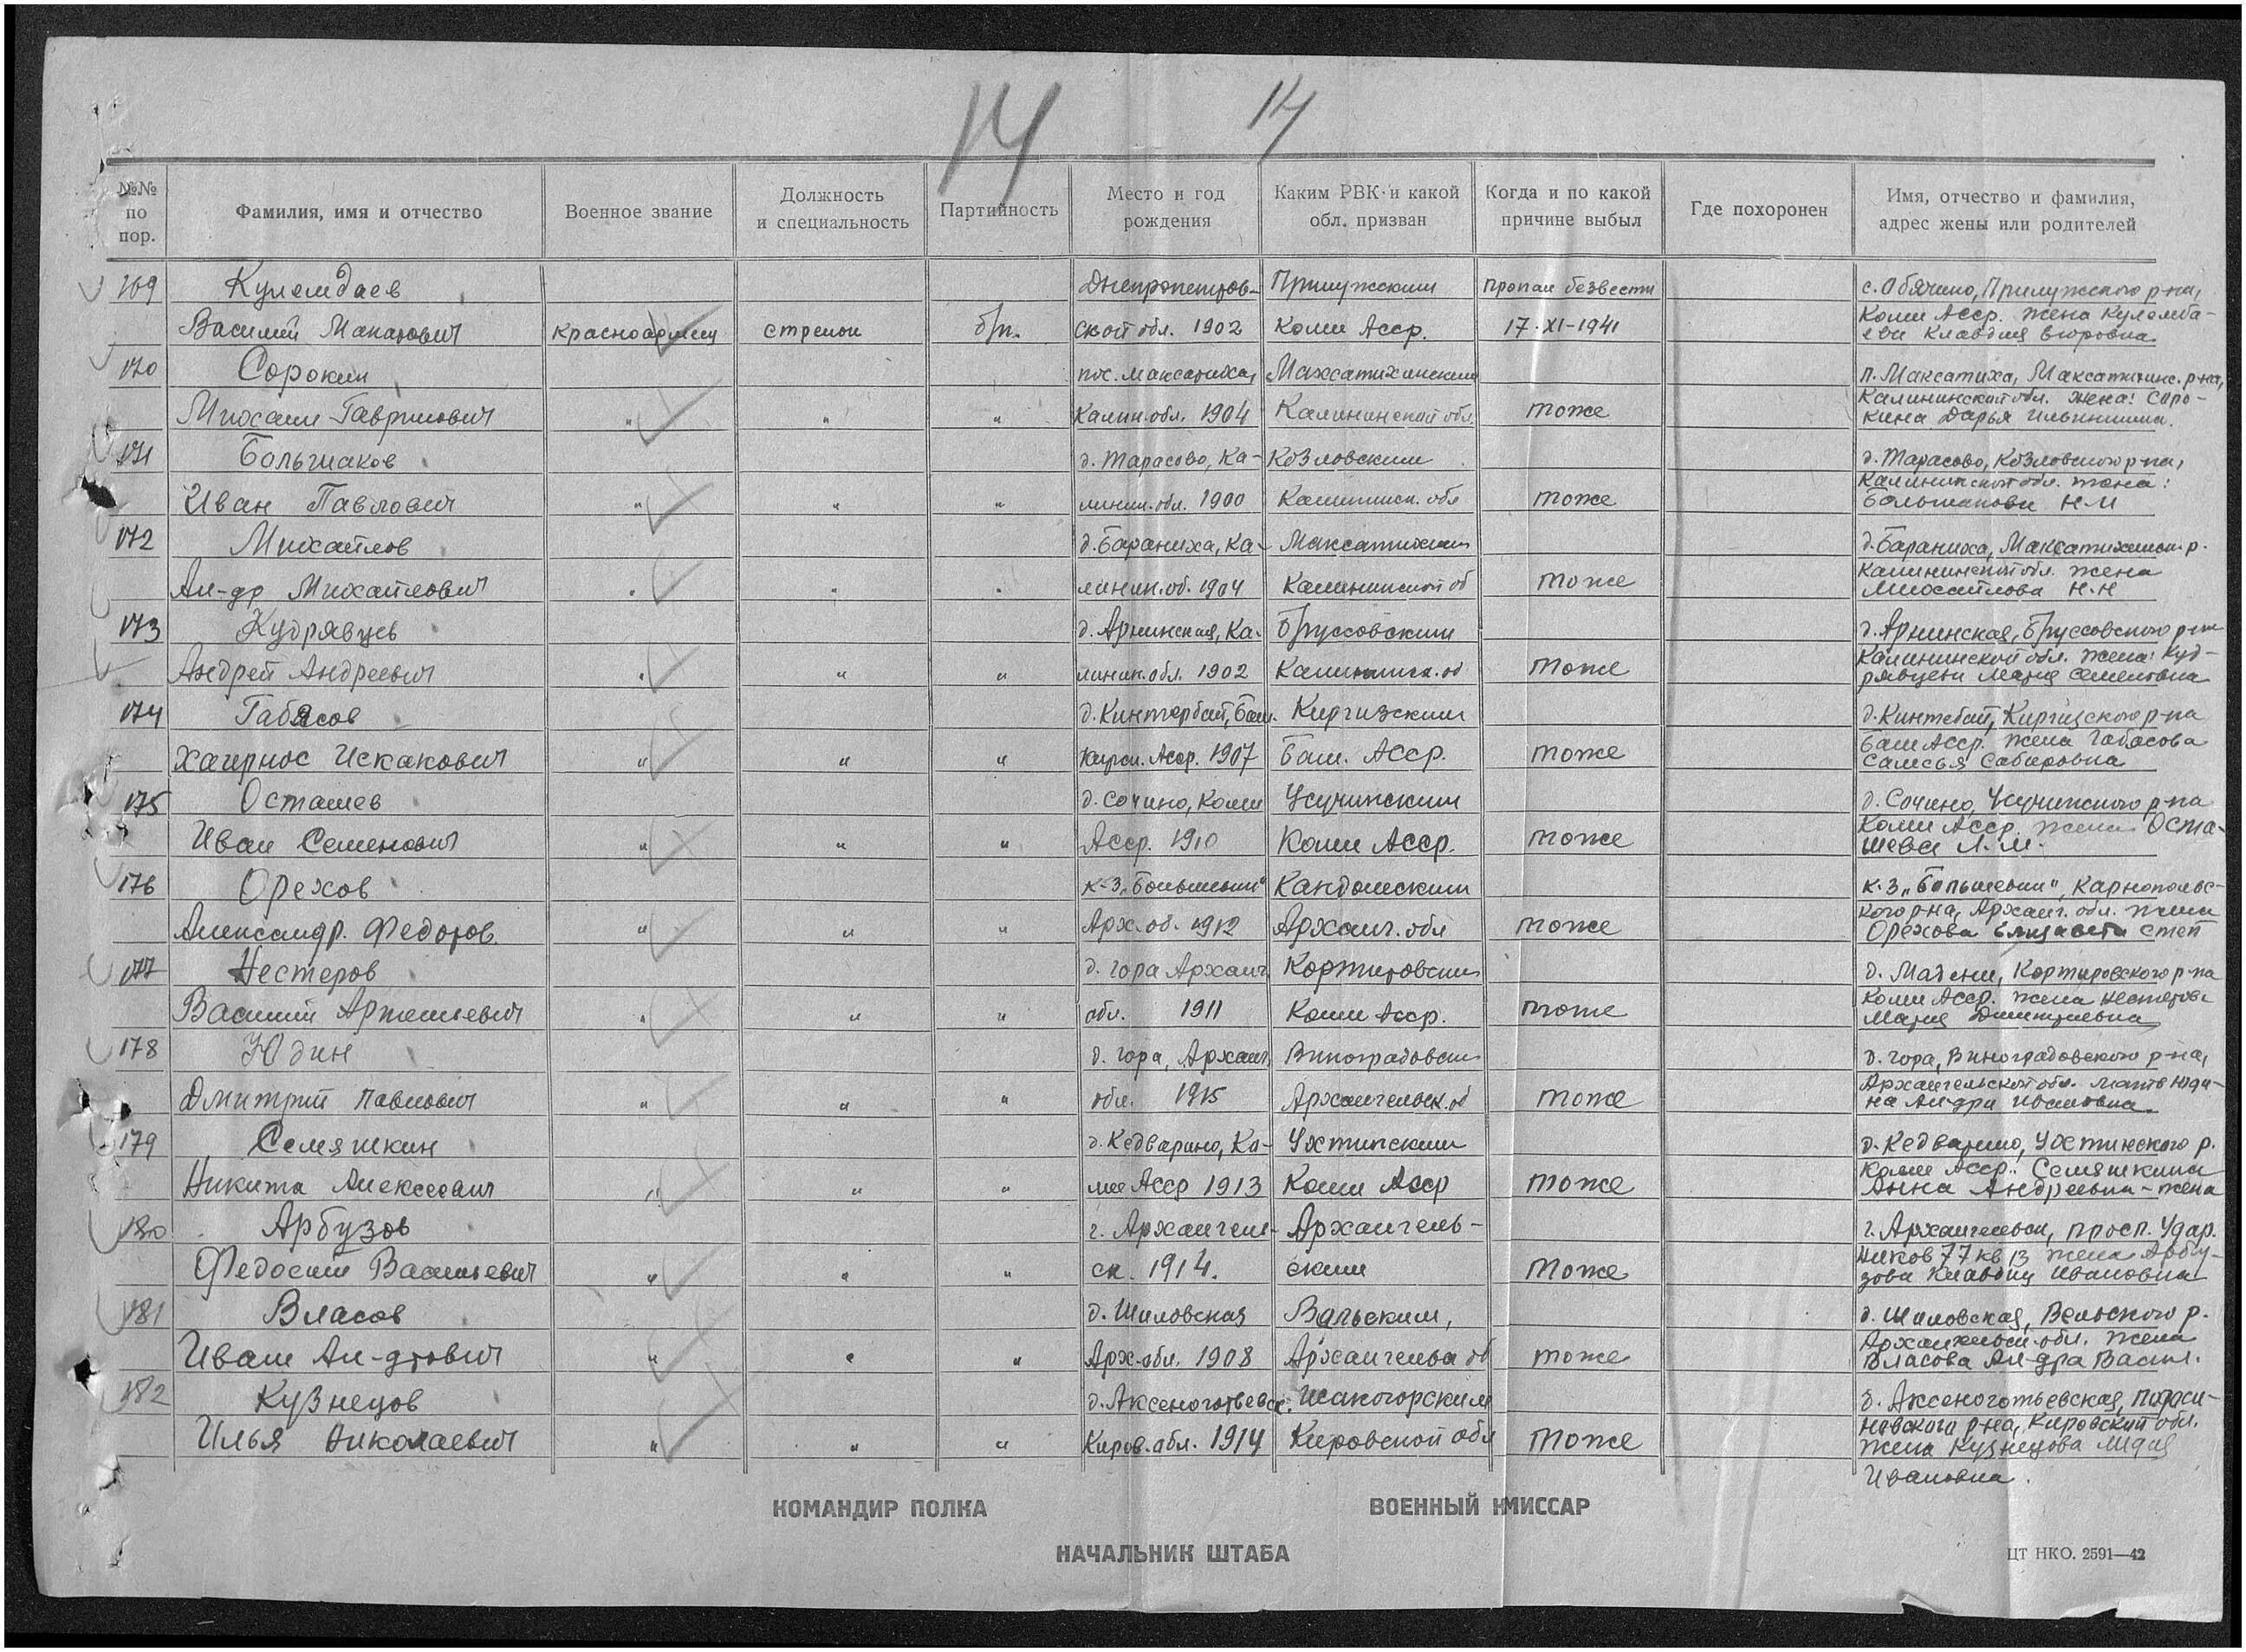 14 14
№№ по пор. Фамилия, имя и отчество Военное звание Должность и специальность Партийность Место и год рождения Каким РВК и какой обл. призван Когда и по какой причине выбыл Где похоронен Имя, отчество и фамилия, адрес жены или родителей
169 Кулембаев Днепропетров- Прилужским пропал безвести с. Обячино, Прилужского р-на,
Василий Макарович красноармеец стрелок б/п. ской обл. 1902 Коми Асср. 17-XI-1941 Коми Асср. жена Кулемба-
ева Клавдия
170 Сорокин пос. Максатиха, Максатихинским п. Максатиха, Максатихинс. р-на,
Михаил Гаврилович " " " Калин. обл. 1904 Калининской обл. тоже Калининской обл. жена: Соро-
кина Дарья Ильинична.
171 Большаков д. Тарасово, Ка- Козловским д. Тарасово, Козловского р-на,
Иван Павлович " " " линин. обл. 1900 Калининск. обл тоже Калининской обл. жена:
Большакова Н-М
172 Михайлов д. Бараниха, Ка- Максатихин д. Бараниха, Максатихинск. р.
Ал-др Михайлович " " " линин. об. 1904 Калининской об тоже Калининской обл. жена
Михайлова Н-Н
173 Кудрявцев д. Арнинская, Ка- Бруссовским д. Арнинская, Бруссовского р-на
Андрей Андреевич " " " линин. обл. 1902 Калининск. об тоже Калининской обл. жена: Куд-
рявцева Мария Семеновна
174 Габасов д. Кинтербай, Баш. Киргизским д. Кинтебай, Киргизского р-на
Хаернос Искакович " " " Асср. 1907 Баш. Асср. тоже Баш Асср. жена Габасова
Сабировна
175 Осташев д. Сочино, Коми Усучинским д. Сочино, Усучинского р-на
Иван Семенович " " " Асср. 1910 Коми Асср. тоже Коми Асср. жена Оста-
шева Л. М.
176 Орехов к-з „Большевик" Кандошским к-з „Большевик", Карнопольс-
Александр. Федоров. " " " Арх. об. 1912 Арханг. обл тоже кого р-на, Арханг. обл. жена
Орехова Елизавета Степ
177 Нестеров д. гора Арханг. Корткеровским д. Маджи, Корткеровского р-на
Василий Артемьевич " " " обл. 1911 Коми Асср. тоже Коми Асср. жена Нестерова
Мария Дмитриевна
178 Юдин д. гора, Арханг. Виноградовским д. гора, Виноградовского р-на,
Дмитрий Павлович " " " обл. 1915 Архангельск. об тоже Архангельской обл. мать Юди-
на Ал-дра Ивановна.
179 Семяшкин д. Кедварино, Ко- Ухтинским д. Кедварино, Ухтинского р.
Никита Алексеевич " " " ми Асср 1913 Коми Асср тоже Коми Асср. Семяшкина
Анна Андреевна - жена
180 Арбузов г. Архангель- Архангель- г. Архангельск, просп. Удар.
Федосий Васильевич " " " ск. 1914. ским тоже ников 77 кв 13 жена Арбу-
зова Клавдия Ивановна
181 Власов д. Шиловская Вельским, д. Шиловская, Вельского р.
Иван Ал-дрович " " " Арх. обл. 1908 Архангельск об тоже Архангельск. обл. жена
Власова Ал-дра Васил.
182 Кузнецов д. Аксеноготьевск. Шакогорским д. Аксеноготьевская,
Илья Николаевич " " " Киров. обл. 1914 Кировской обл тоже новского р-на, Кировской обл.
жена Кузнецова Лидия
Ивановна.
КОМАНДИР ПОЛКА ВОЕННЫЙ КМИССАР
НАЧАЛЬНИК ШТАБА ЦТ НКО. 2591—42